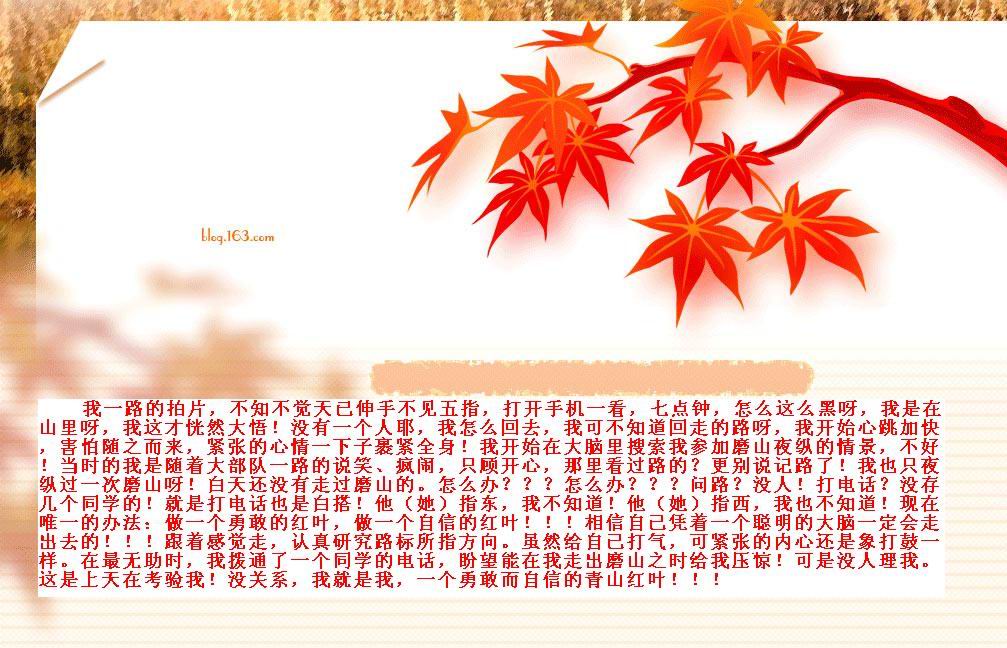 blog.163.com
我一路的拍片，不知不觉天已伸手不见五指，打开手机一看，七点钟，怎么这么黑呀，我是在
山里呀，我这才恍然大悟！没有一个人耶，我怎么回去，我可不知道回走的路呀，我开始心跳加快
，害怕随之而来，紧张的心情一下子裹紧全身！我开始在大脑里搜索我参加磨山夜纵的情景，不好
！当时的我是随着大部队一路的说笑、疯闹，只顾开心，那里看过路的？更别说记路了！我也只夜
纵过一次磨山呀！白天还没有走过磨山的。怎么办？？？怎么办？？？问路？没人！打电话？没存
几个同学的！就是打电话也是白搭！他（她）指东，我不知道！他（她）指西，我也不知道！现在
唯一的办法：做一个勇敢的红叶，做一个自信的红叶！！！相信自己凭着一个聪明的大脑一定会走
出去的！！！跟着感觉走，认真研究路标所指方向。虽然给自己打气，可紧张的内心还是象打鼓一
样。在最无助时，我拨通了一个同学的电话，盼望能在我走出磨山之时给我压惊！可是没人理我。
这是上天在考验我！没关系，我就是我，一个勇敢而自信的青山红叶！！！